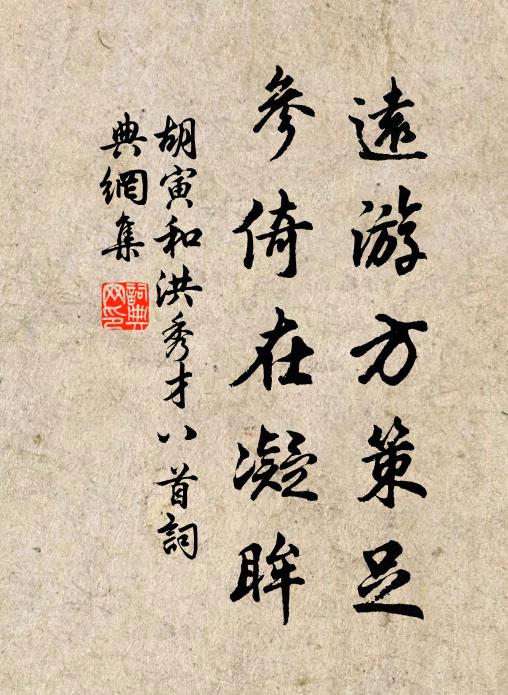 遠游方策足
參倚在凝眸
胡寅和洪秀才八首詞
典網集
詞典
网印